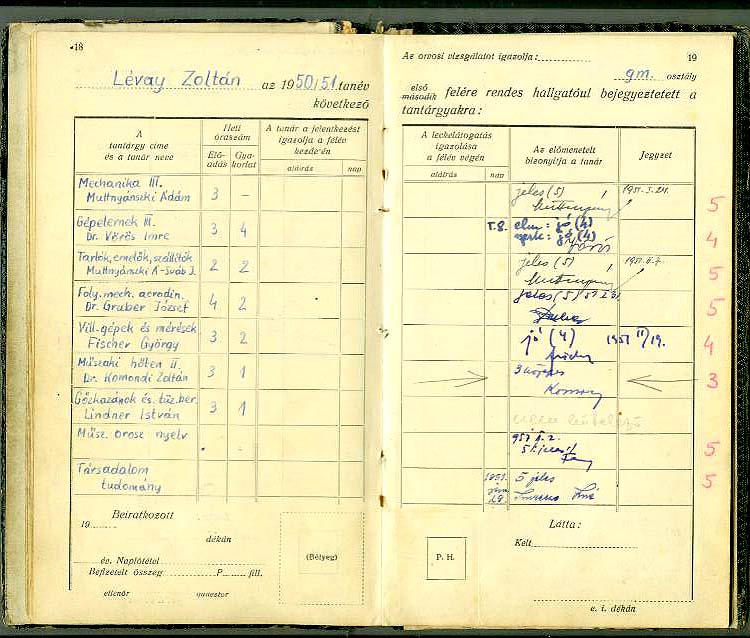 18
Lévay Zoltán az 1950/51 tanév
következő
A
tantárgy címe
és a tanár neve
Heti
óraszám
Elő-
adás
Gya-
korlat
A tanár a jelentkezést
igazolja a félév
kezdetén
aláírás
nap
Mechanika III.
Muttnyánszki Ádám
3 –
Gépelemek III.
Dr. Vörös Imre
3 4
Tartók, emelők, szállítók
Muttnyánszki Á-Sváb J.
2 2
Foly. mech. aerodin.
Dr. Gruber József
4 2
Vill-gépek és mérések
Fischer György
3 2
Műszaki hőtan II.
Dr. Komondi Zoltán
3 1
Gőzkazánok és tüz. ber.
Lindner István
3 1
Műsz. orosz nyelv
Társadalom
tudomány
Beiratkozott
19
dékán
év. Naplótétel
Befizetett összeg P fill.
ellenőr quaestor
(Bélyeg)
Az orvosi vizsgálatot igazolja:
19
gm. osztály
első
második felére rendes hallgatóul bejegyeztetett a
tantárgyakra:
A leckelátogatás
igazolása
a félév végén
aláírás
nap
Az előmenetelt
bizonyítja a tanár
Jegyzet
jeles (5)
5
elm: jó (4)
gyak: jó (4)
Vörös
4
jeles (5)
5
jeles (5)
5
jó (4)
4
3 közepes
3
5
1951
5 jeles
5
P. H.
Látta:
Kelt
e. i. dékán